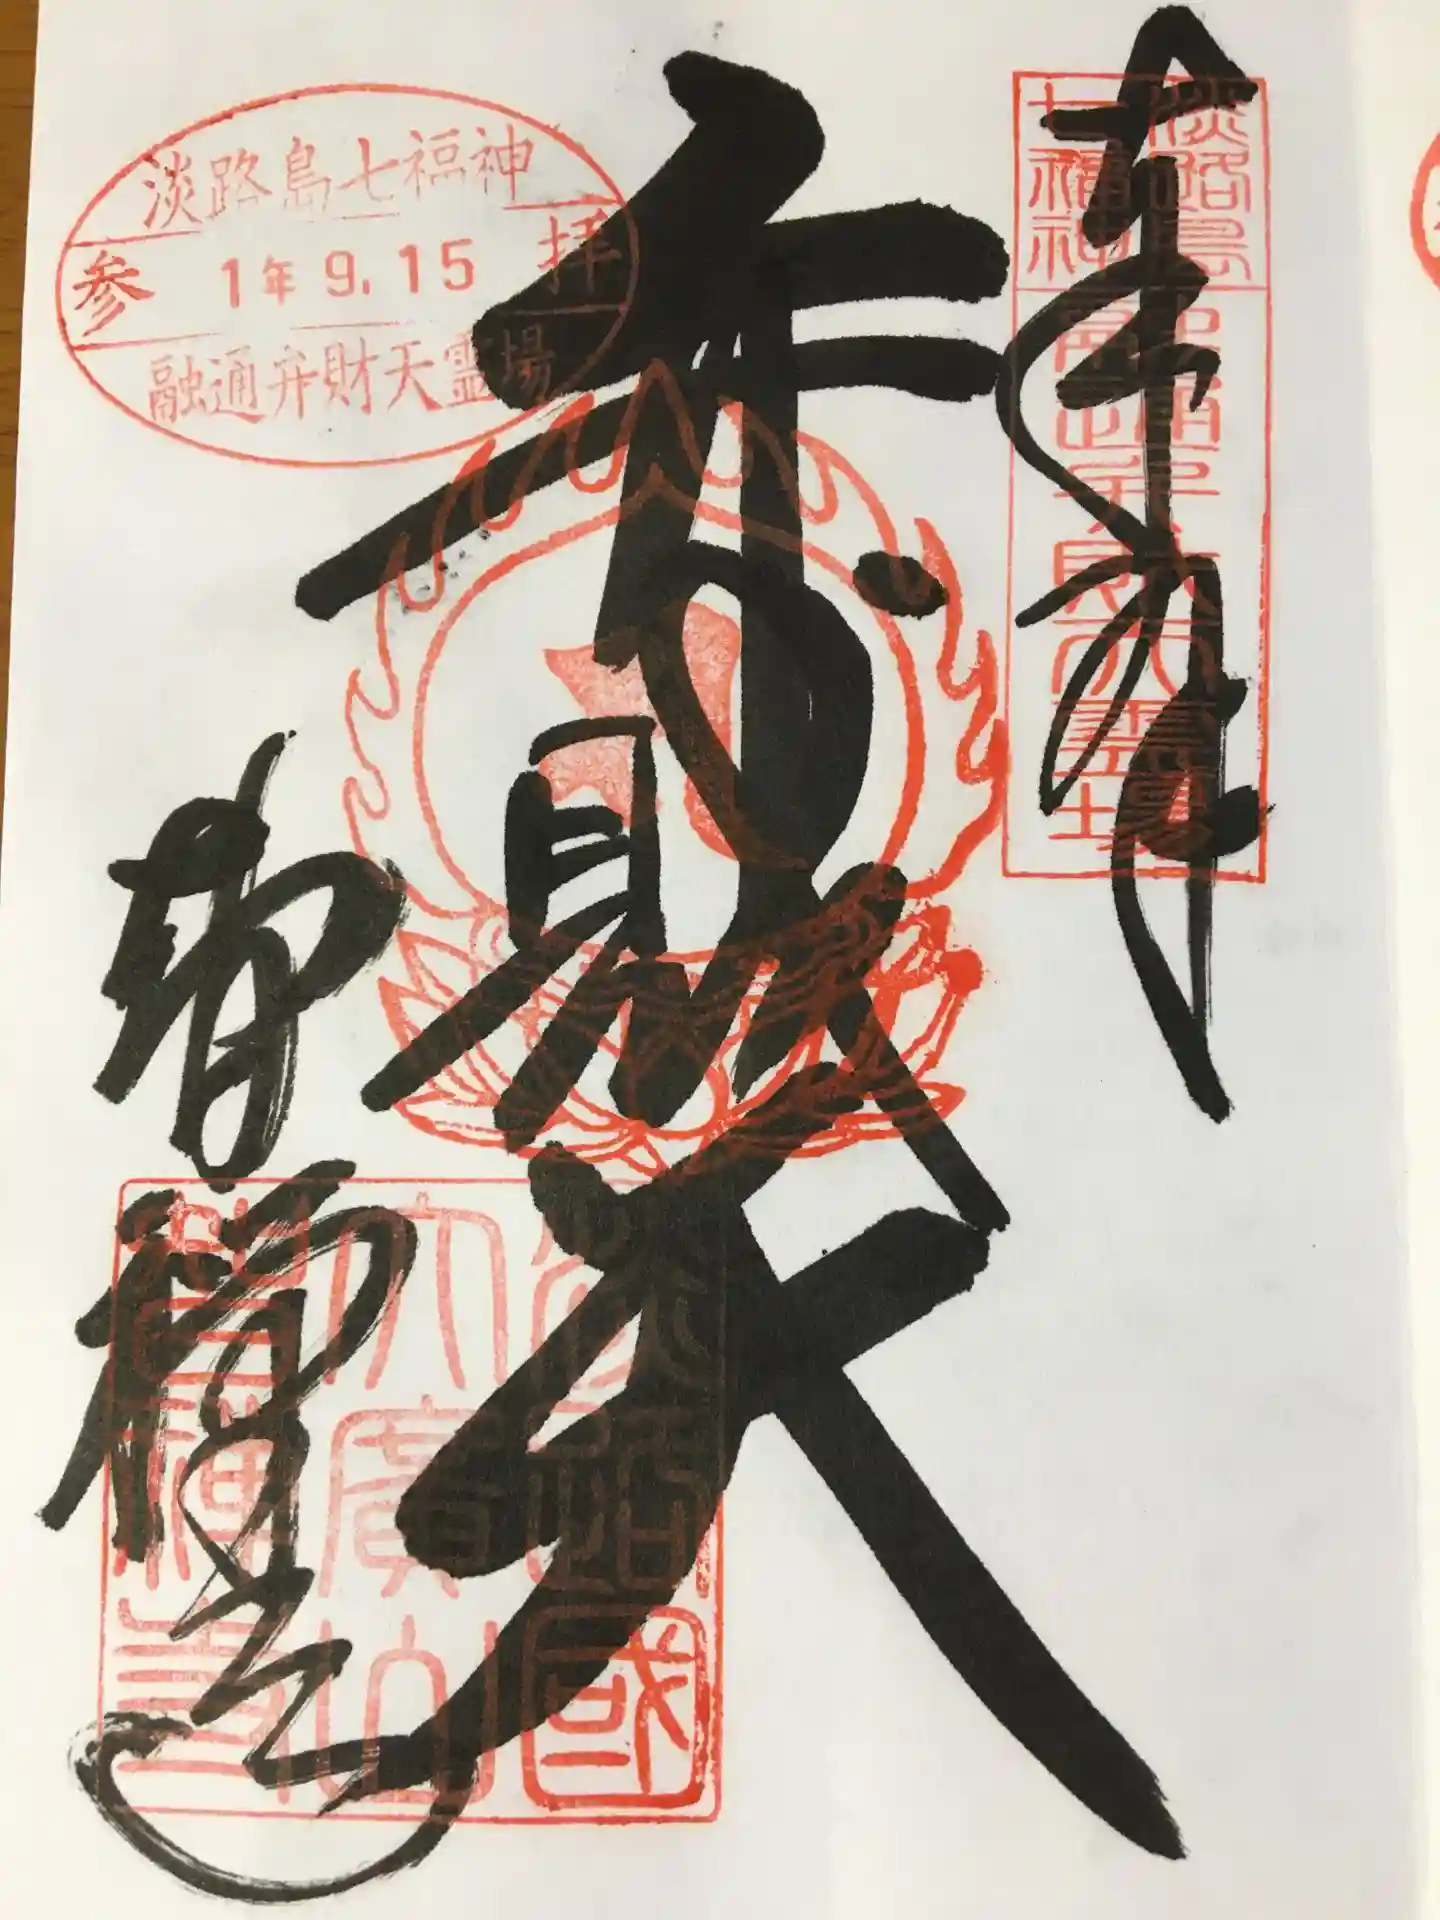 奉拝
淡路島
七福神
融通弁財天霊場
弁財天
淡路島七福神
参 1年9.15 拝
融通弁財天霊場
智禅寺
淡路國
大廣山
智禅寺